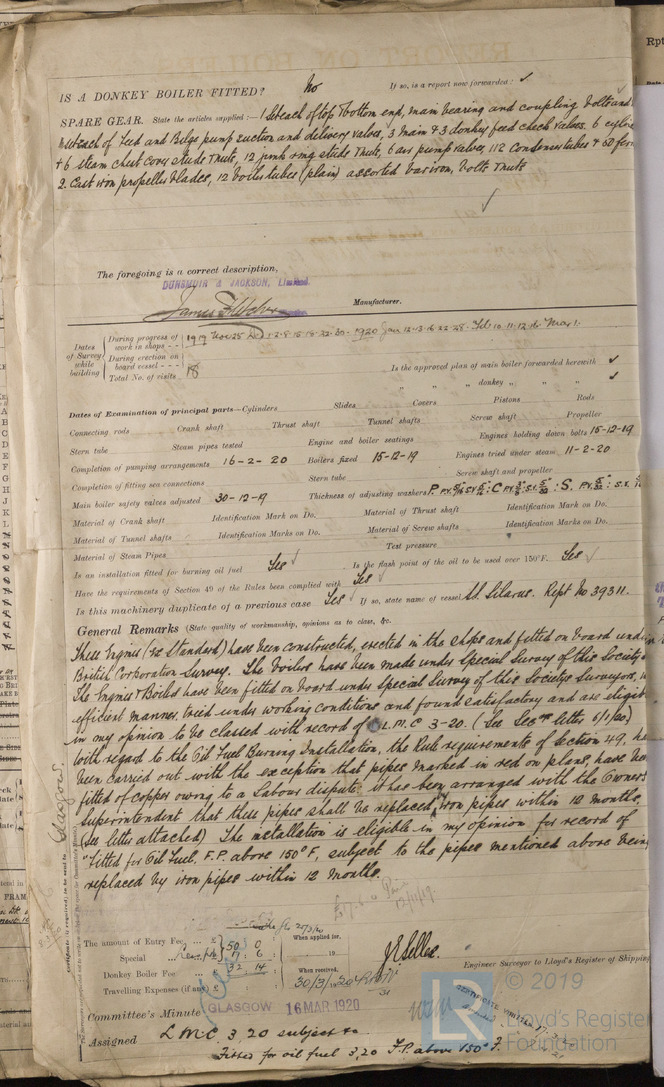 IS A DONKEY BOILER FITTED? No If so, is a report now forwarded: ✓
SPARE GEAR. State the articles supplied:— 1 set each of top & bottom end, main bearing and coupling bolts and
set each of Feed and Bilge pump suction and delivery valves, 3 main & 3 donkey feed check valves. 6
+ 6 steam chest cover studs & nuts, 12 junk ring studs & nuts, 6 air pump valves, 112 Condenser tubes + 50
2 Cast iron propeller blades, 12 boiler tubes (plain) assorted bar iron, bolts & nuts
The foregoing is a correct description,
DUNSMUIR & JACKSON, Limited.
Manufacturer.
Dates of Survey while building
During progress of work in shops - - 1919 Nov 28 Dec 1-2-8-15-16-22-30- 1920 Jan 12-13-16-22-28- Feb 10-11-12-16 Mar 1.
During erection on board vessel - - -
Total No. of visits 18
Is the approved plan of main boiler forwarded herewith ✓
" " " donkey " " " ✓
Dates of Examination of principal parts—Cylinders Slides Covers Pistons Rods
Connecting rods Crank shaft Thrust shaft Tunnel shafts Screw shaft Propeller
Stern tube Steam pipes tested Engine and boiler seatings Engines holding down bolts 15-12-19
Completion of pumping arrangements 16-2-20 Boilers fixed 15-12-19 Engines tried under steam 11-2-20
Completion of fitting sea connections Stern tube Screw shaft and propeller
Main boiler safety valves adjusted 30-12-19 Thickness of adjusting washers
Material of Crank shaft Identification Mark on Do. Material of Thrust shaft Identification Mark on Do.
Material of Tunnel shafts Identification Marks on Do. Material of Screw shafts Identification Marks on Do.
Material of Steam Pipes Test pressure
Is an installation fitted for burning oil fuel Yes ✓ Is the flash point of the oil to be used over 150°F. Yes ✓
Have the requirements of Section 49 of the Rules been complied with Yes ✓
Is this machinery duplicate of a previous case Yes ✓ If so, state name of vessel S.S. Silarus. Rept No 39311.
General Remarks (State quality of workmanship, opinions as to class, &c.
These Engines (Standard) have been constructed, erected in the shops and fitted on board under
British Corporation Survey. The boilers have been made under Special Survey of this Society.
The Engines & Boilers have been fitted on board under Special Survey of this Societys Surveyors, in
efficient manner, tried under working conditions and found satisfactory and are eligible
in my opinion to be classed with record of L.M.C 3-20. (See Secys letter 6/1/20.)
With regard to the Oil Fuel Burning Installation, the Rule requirements of Section 49, have
been carried out with the exception that pipes marked in red on plans, have been
fitted of copper owing to a Labour dispute. it has been arranged with the Owners
Superintendent that these pipes shall be replaced, iron pipes within 12 months,
(see letter attached) The installation is eligible in my opinion for record of
"Fitted for Oil Fuel, F.P. above 150°F, subject to the pipes mentioned above being
replaced by iron pipes within 12 months.
Glasgow
The amount of Entry Fee ... £ 50 : 0 When applied for,
Special ... £ 7 : 6 19
Donkey Boiler Fee ... £ 32 : 14 When received,
Travelling Expenses (if any) £ 30/3/1920
Engineer Surveyor to Lloyd's Register of Shipping
Committee's Minute GLASGOW 16 MAR 1920
Assigned L.M.C. 3,20 subject to
Fitted for oil fuel 3,20 F.P. above 150°F.
CERTIFICATE WRITTEN
LR
© 2019
Lloyd's Register
Foundation
Rpt